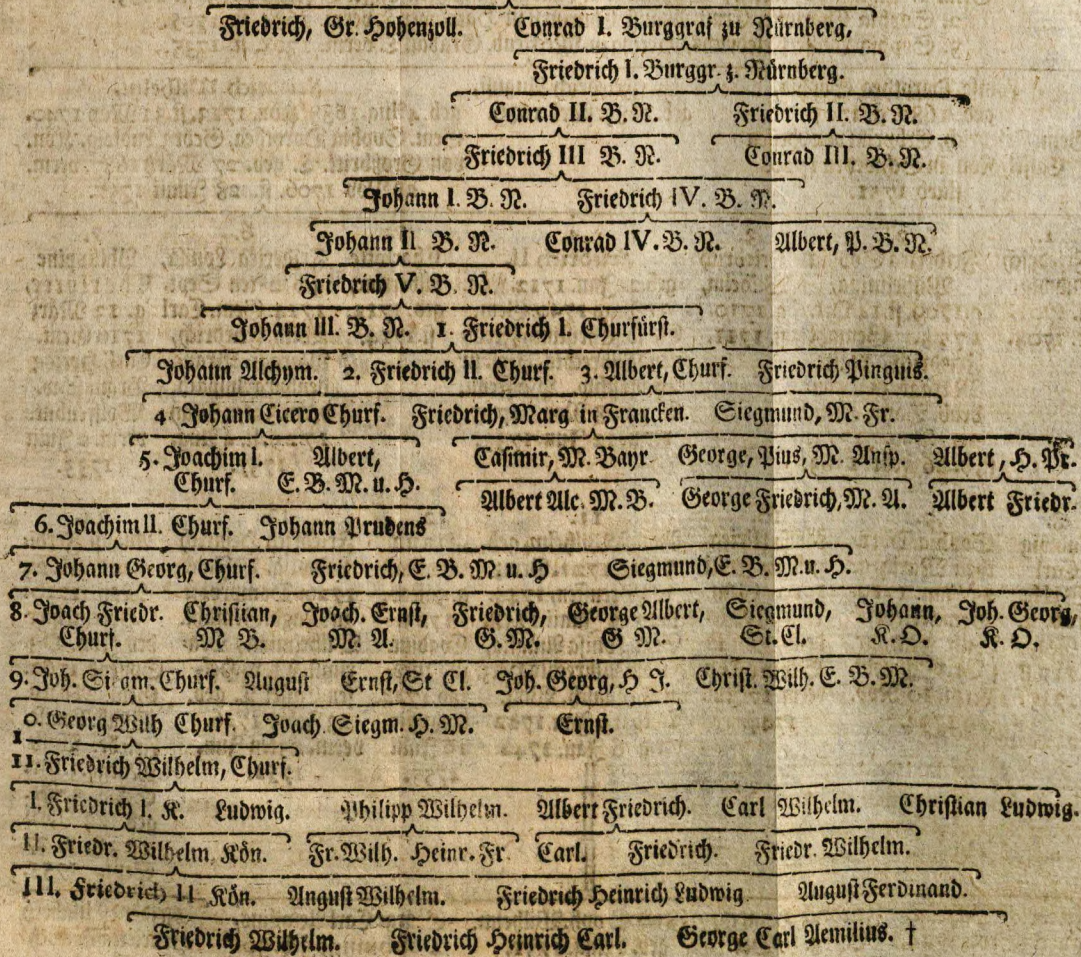 Friedrich, Gr. Hohenzoll. Conrad I. Burggraf zu Nürnberg,
Friedrich I. Burggr. z. Nürnberg.
Conrad II. B. N. Friedrich II. B. N.
Friedrich III B. N. Conrad III. B. N.
Johann I. B. N. Friedrich IV. B. N.
Johann II B. N. Conrad IV. B. N. Albert, P. B. N.
Friedrich V. B. N.
Johann III. B. N. 1. Friedrich I. Churfürst.
Johann Alchym. 2. Friedrich II. Churf. 3. Albert, Churf. Friedrich Pinguis.
4 Johann Cicero Churf. Friedrich, Marg in Francken. Siegmund, M. Fr.
5. Joachim I. Albert, Casimir, M. Bayr George, Pius, M. Ansp. Albert, H. Pr.
Churf. E. B. M. u. H. Albert Alc. M. B. George Friedrich, M. A. Albert Friedr.
6. Joachim II. Churf. Johann Prudens
7. Johann Georg, Churf. Friedrich, E. B. M. u. H Siegmund, E. B. M. u. H.
8. Joach Friedr. Christian, Joach. Ernst, Friedrich, George Albert, Siegmund, Johann, Joh. Georg,
Churf. M B. M. A. G. M. G M. St. Cl. K. O. K. O.
9. Joh. Si am. Churf. August Ernst, St Cl. Joh. Georg, H J. Christ. Wilh. E. B. M.
10. Georg Wilh Churf. Joach. Siegm. H. M. Ernst.
11. Friedrich Wilhelm, Churf.
I. Friedrich I. K. Ludwig. Philipp Wilhelm. Albert Friedrich. Carl Wilhelm. Christian Ludwig.
II. Friedr. Wilhelm Kön. Fr. Wilh. Heinr. Fr Carl. Friedrich. Friedr. Wilhelm.
III. Friedrich II Kön. August Wilhelm. Friedrich Heinrich Ludwig August Ferdinand.
Friedrich Wilhelm. Friedrich Heinrich Carl. George Carl Aemilius. †